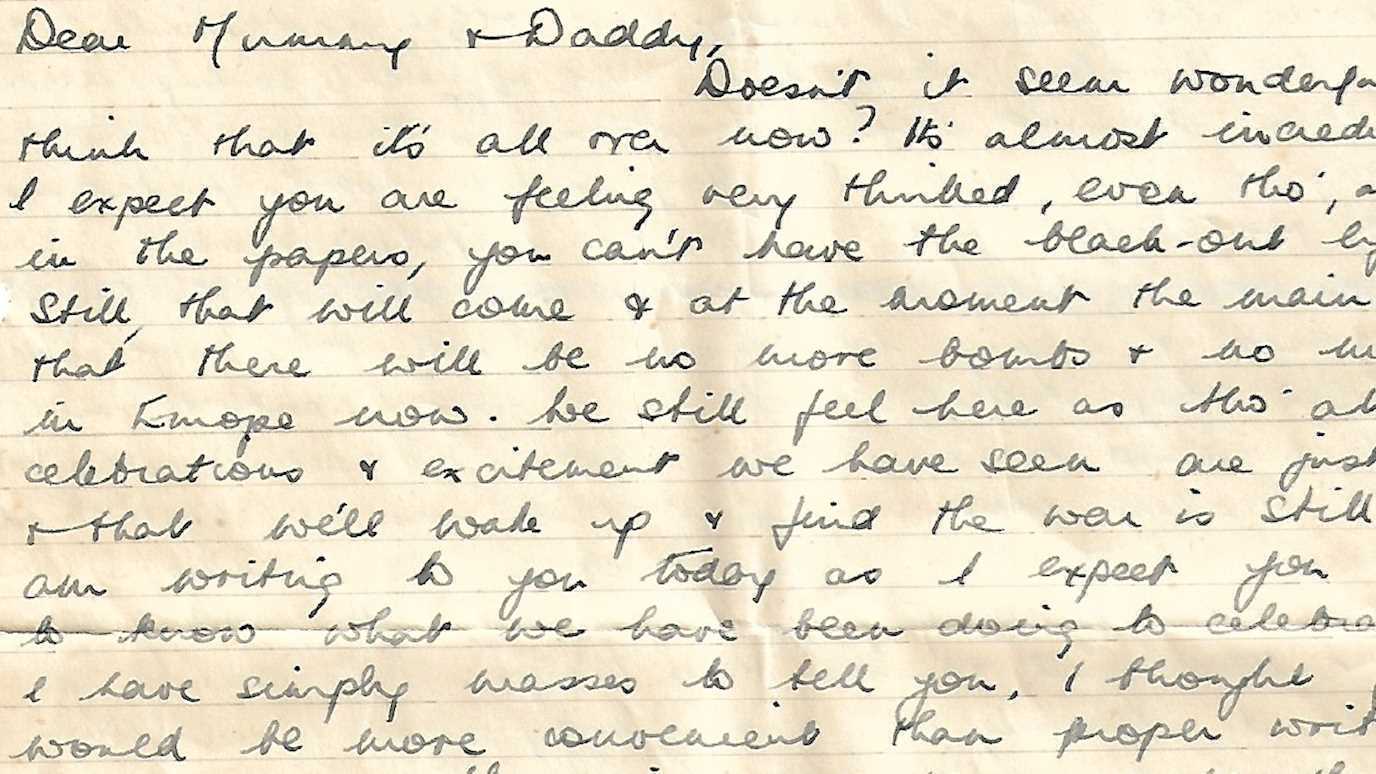 Dear Mummy & Daddy,
Doesn't it seem wonderfu
think that it's all over now? It's almost incredi
I expect you are feeling very thrilled, even tho', a
in the papers, you can't have the black-out
Still, that will come & at the moment the main
that there will be no more bombs & no m
in Europe now. We still feel here as tho' al
celebrations & excitement we have seen are just
& that we'll wake up & find the war is still
am writing to you today as I expect you
to know what we have been doing to celebra
I have simply masses to tell you, I thought
would be more convenient than proper writ